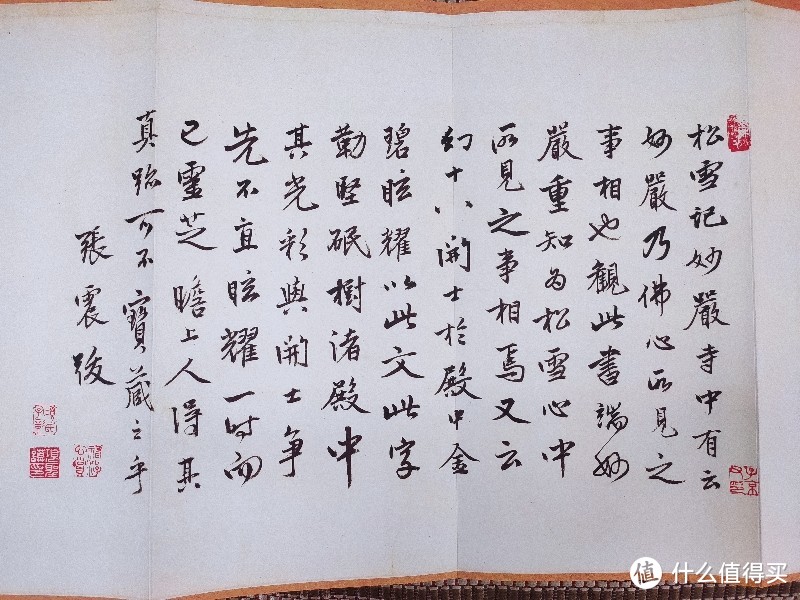 松雪记妙嚴寺中有云
妙嚴乃佛心所見之
事相也觀此書端妙
嚴重知為松雪心中
所見之事相焉又云
幻十八開士於殿中金
碧眩耀以此文此字
勒堅砥樹渚殿中
其光彩與開士争
先不直眩耀一时而
已靈芝瞻上人得其
真跡可不寶藏之乎
張震跋
值 什么值得买